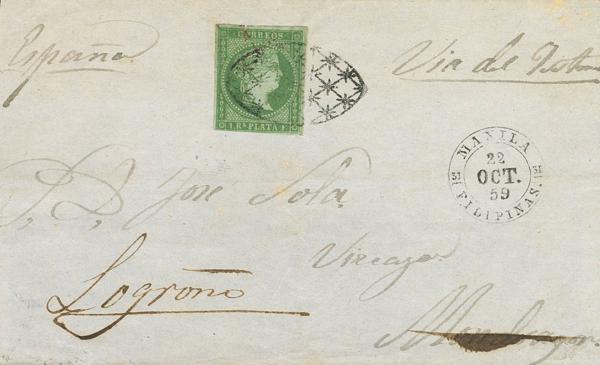 España
CORREOS
1 Rl. PLATA F.
Via del
MANILA
22
OCT.
59
FILIPINAS.
D. D. José Sola
Logroño